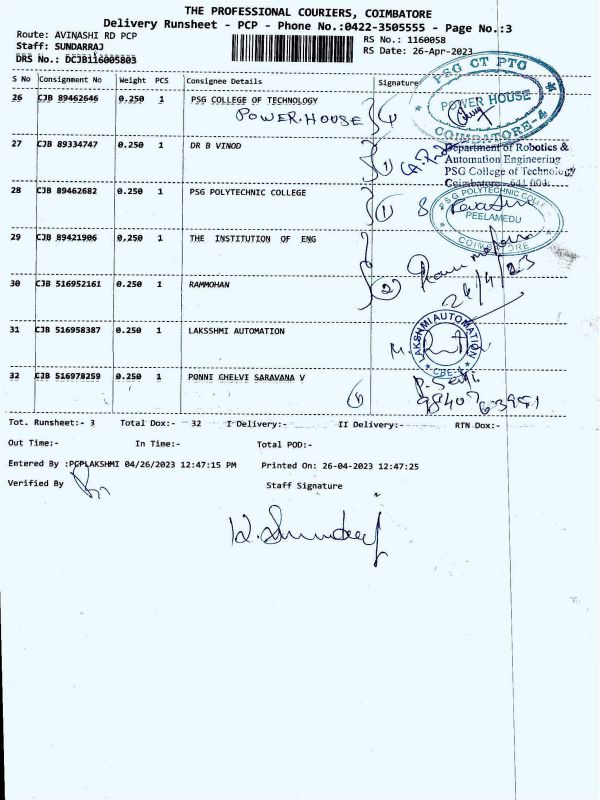 THE PROFESSIONAL COURIERS, COIMBATORE
Delivery Runsheet - PCP - Phone No.:0422-3505555 - Page No.:3
Route: AVINASHI RD PCP
RS No.: 1160058
Staff: SUNDARRAJ
RS Date: 26-Apr-2023
DRS No.: DCJB116005803
S No Consignment No Weight PCS Consignee Details Signature
PSG CT PTC
POWER HOUSE
COIMBATORE-4
26 CJB 89462646 0.250 1 PSG COLLEGE OF TECHNOLOGY
POWER.HOUSE
27 CJB 89334747 0.250 1 DR B VINOD
①
Department of Robotics &
Automation Engineering
PSG College of Technology
Coimbatore - 641 004.
28 CJB 89462682 0.250 1 PSG POLYTECHNIC COLLEGE
①
PSG POLYTECHNIC COLLEGE
PEELAMEDU
COIMBATORE
29 CJB 89421906 0.250 1 THE INSTITUTION OF ENG
30 CJB 516952161 0.250 1 RAMMOHAN
②
26/4/23
31 CJB 516958387 0.250 1 LAKSSHMI AUTOMATION
LAKSHMI AUTOMATION
32 CJB 516978259 0.250 1 PONNI CHELVI SARAVANA V
Tot. Runsheet:- 3 Total Dox:- 32 I Delivery:- II Delivery:- RTN Dox:-
Out Time:- In Time:- Total POD:-
Entered By :PCPLAKSHMI 04/26/2023 12:47:15 PM Printed On: 26-04-2023 12:47:25
Verified By Staff Signature